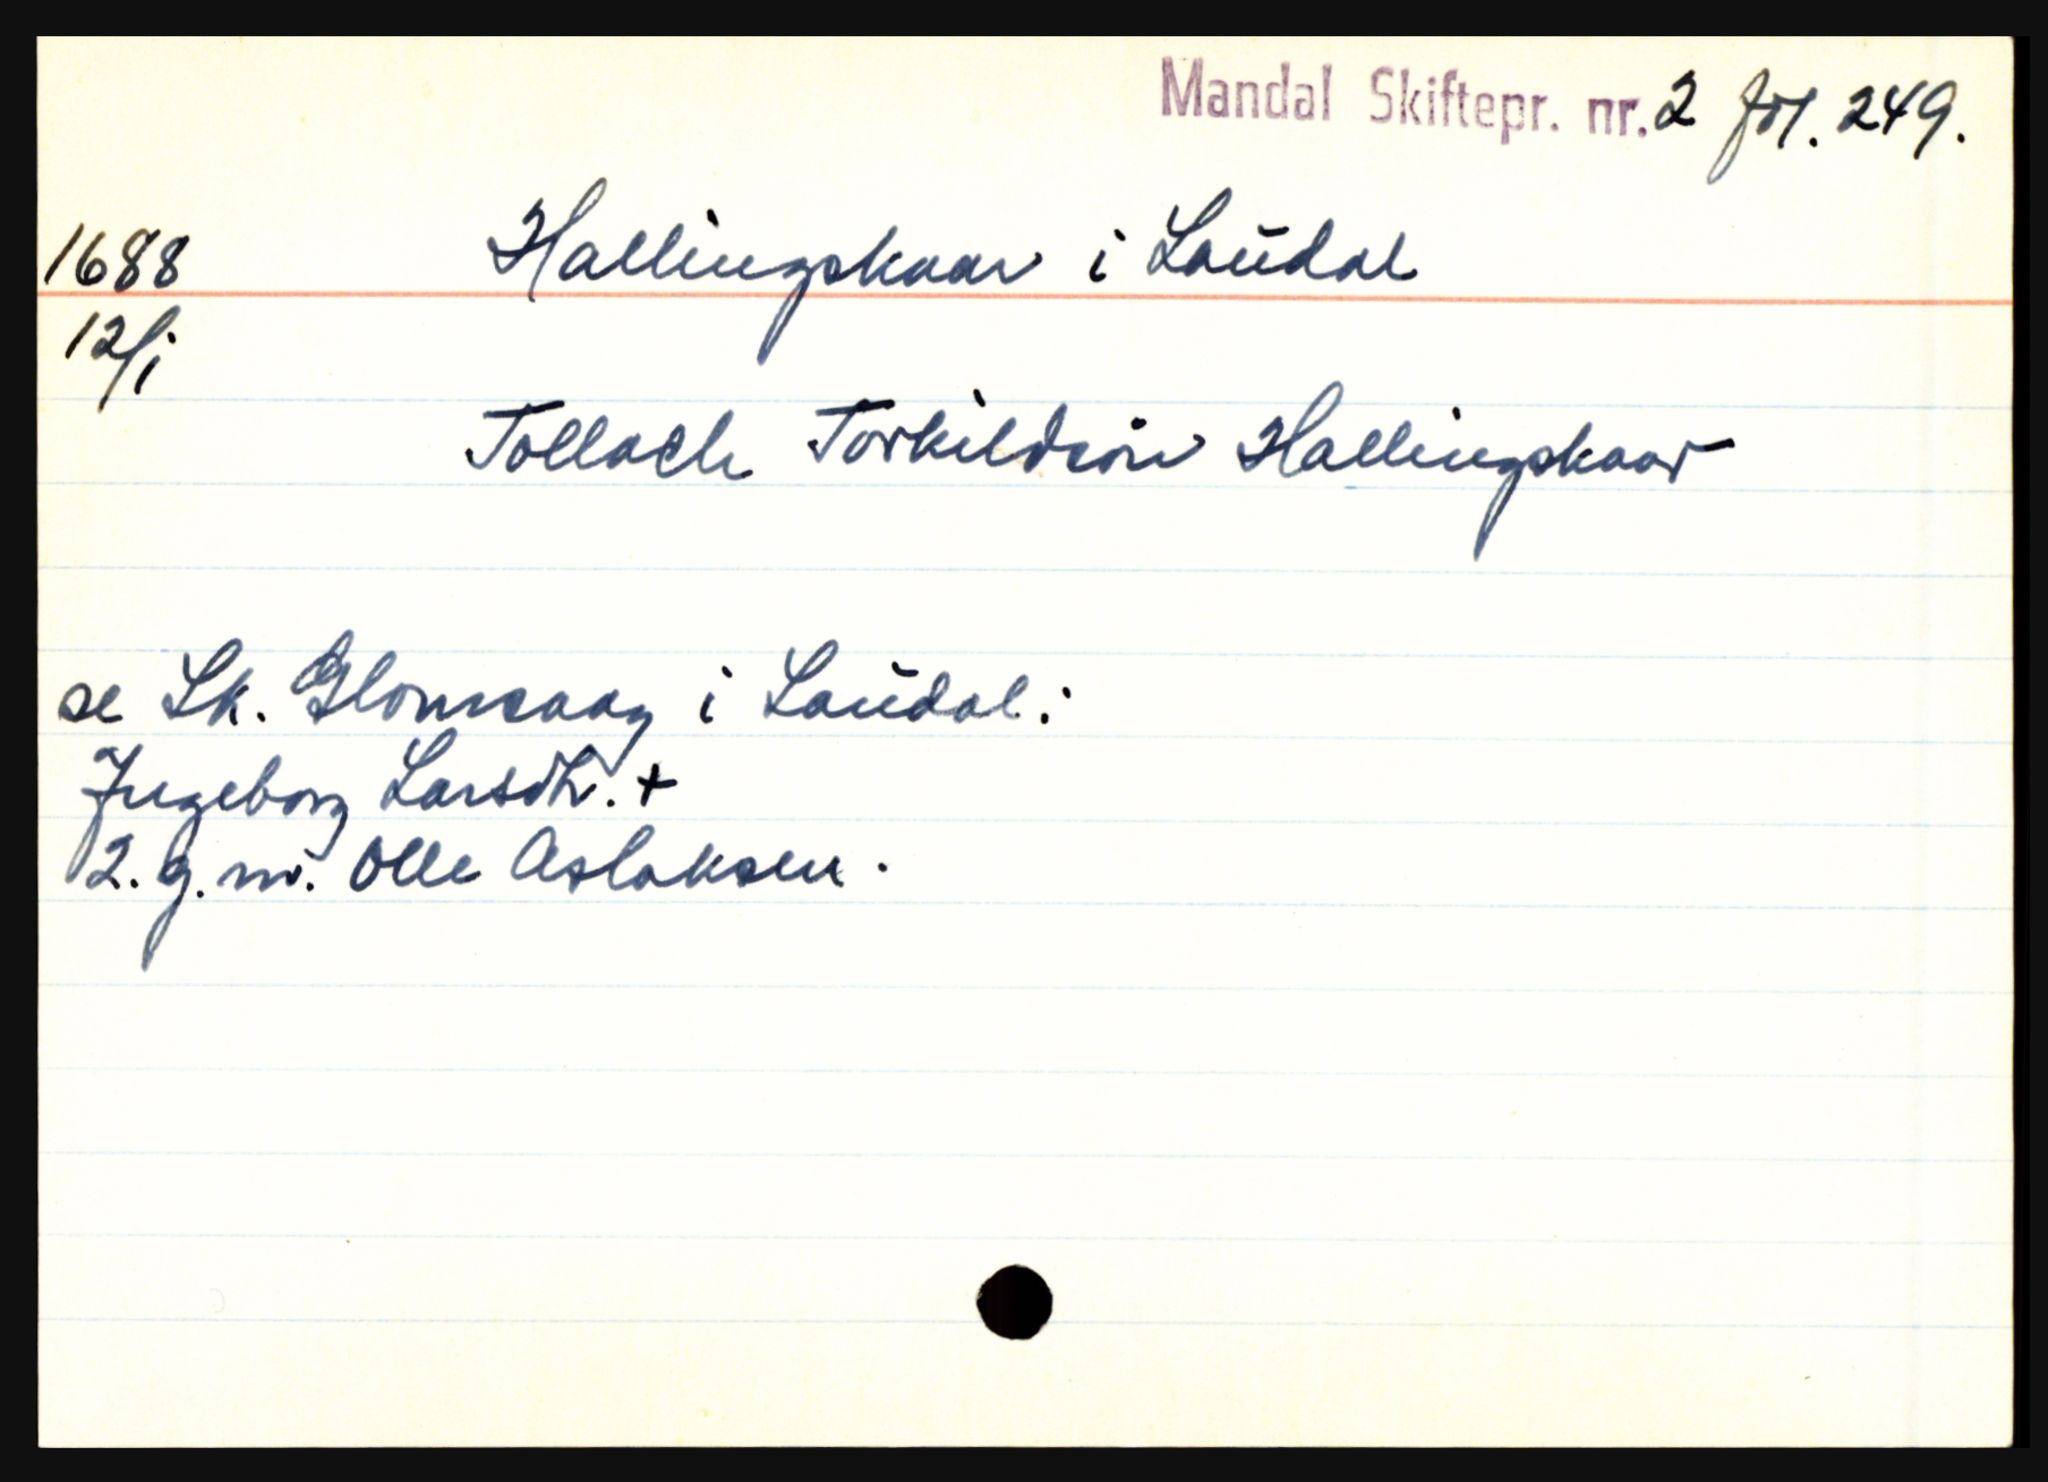 Mandal Skiftepr. nr. 2 fol. 249.
1688 Hallingskaar i Laudal
12/1
Tollach Torkildsön Hallingskaar
se Sk. Glomsaag i Laudal:
Ingeborg Larsdtr. +
2. g. m. Olle Aslaksen.